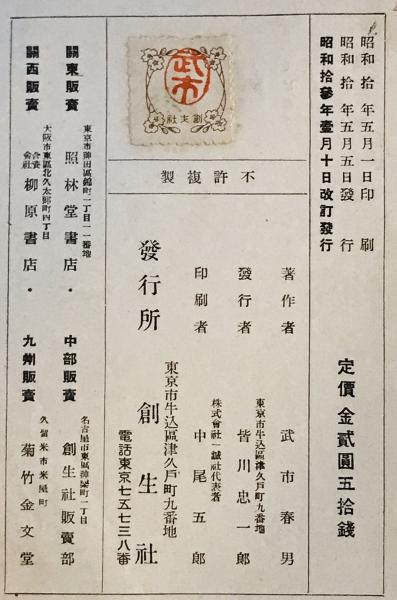 昭和拾年五月一日印刷
昭和拾年五月五日發行
昭和拾參年壹月十日改訂發行
定價金貳圓五拾錢
武市
創生社
不許複製
著作者 武市春男
東京市牛込區津久戸町九番地
發行者 皆川忠一郎
株式會社一誠社代表者
印刷者 中尾五郎
東京市牛込區津久戸町九番地
發行所 創生社
電話東京七五七三八番
關東販賣 東京市神田區錦町一丁目一一番地 照林堂書店・
中部販賣 名古屋市東區 町一丁目 創生社販賣部
關西販賣 大阪市東區北久太郎町四丁目 合資會社 柳原書店・
九州販賣 久留米市米屋町 菊竹金文堂